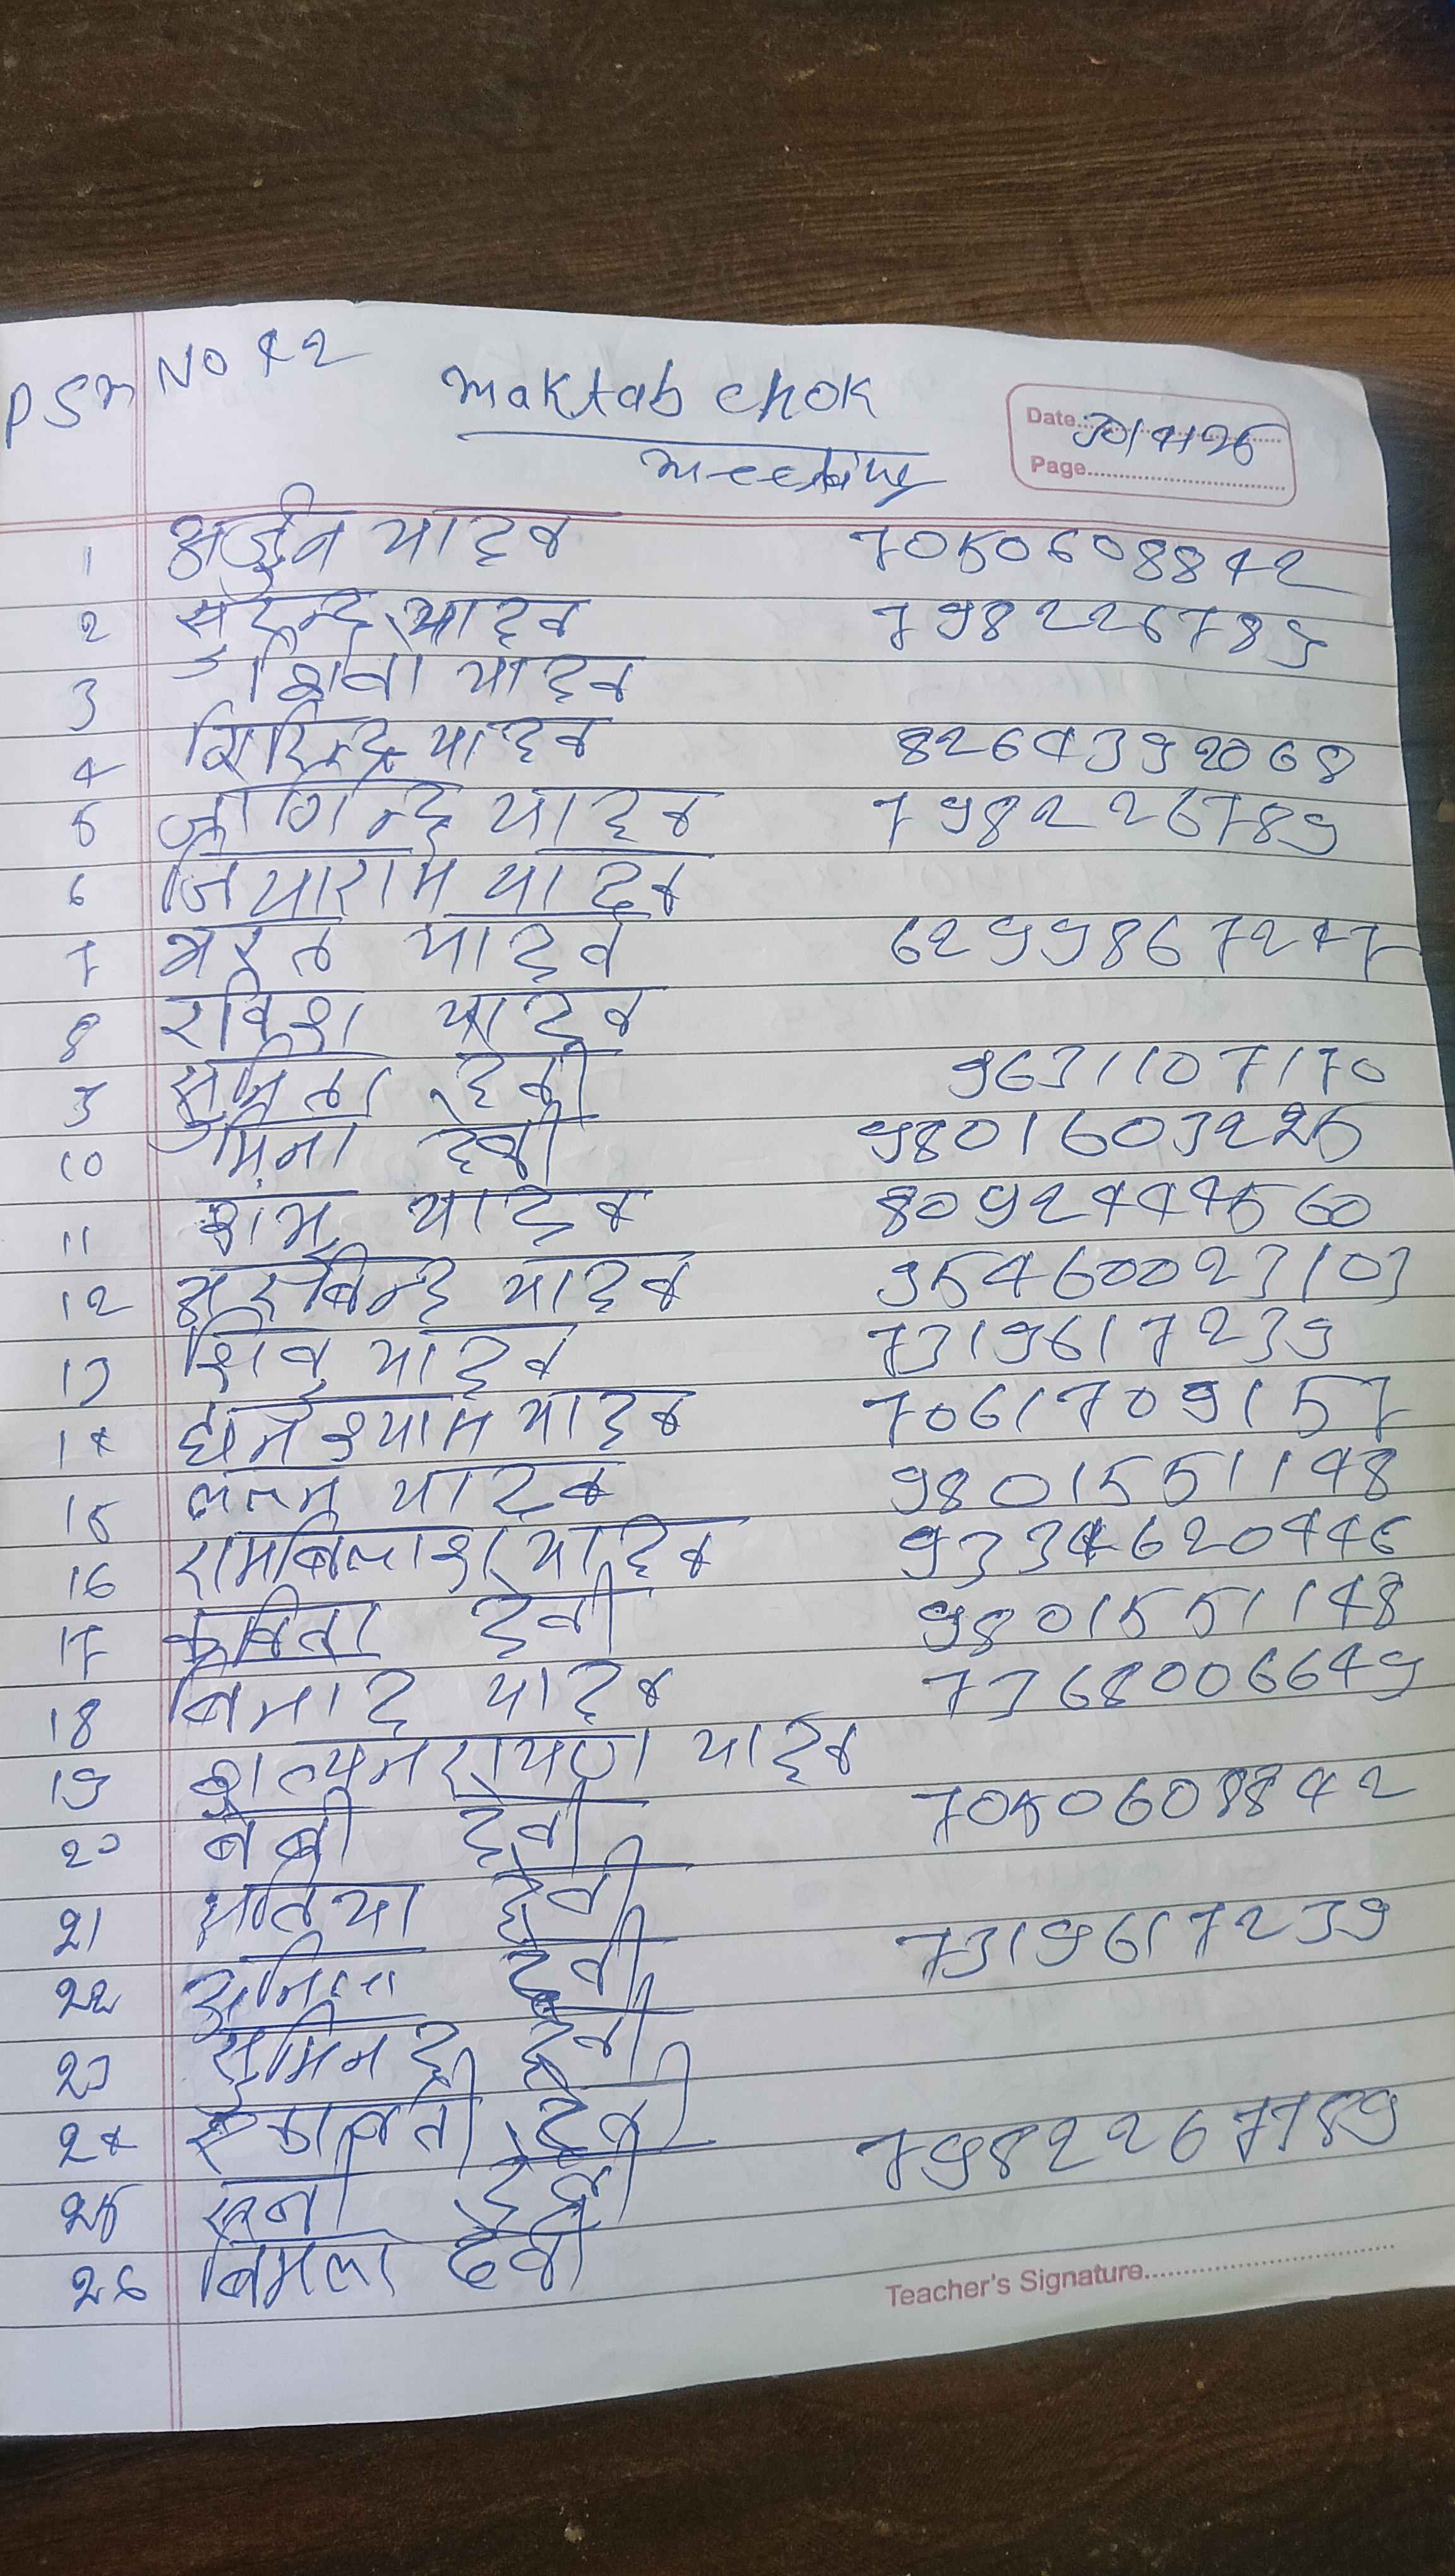 PSM NO 42
maktab chok
meeting
Date 30/4/25
Page
1 अर्जुन यादव 7050608842
2 सुरेन्द्र यादव 798226789
3 शिवा यादव
4 सिरिन्द्र यादव 8264392068
5 जोगिन्द्र यादव 798226789
6 जियाराम यादव
7 भरत यादव 6299867247
8 रविश यादव
9 सुनिता देवी 9631107170
10 मिना देवी 9801603225
11 शंभू यादव 80924444560
12 अरबिन्द यादव 95460023103
13 शिवु यादव 7319617239
14 घनश्याम यादव 7061709157
15 ललनु यादव 9801551148
16 रामबिलाश यादव 9334620446
17 कबिता देवी 9801551148
18 बिनोद यादव 7368006649
19 शत्यनरायण यादव
20 बेबी देवी 7050608842
21 देवी
22 देवी 7319617239
23 देवी
24 देवी
25 देवी 7982267789
26 बिमला देवी
Teacher's Signature